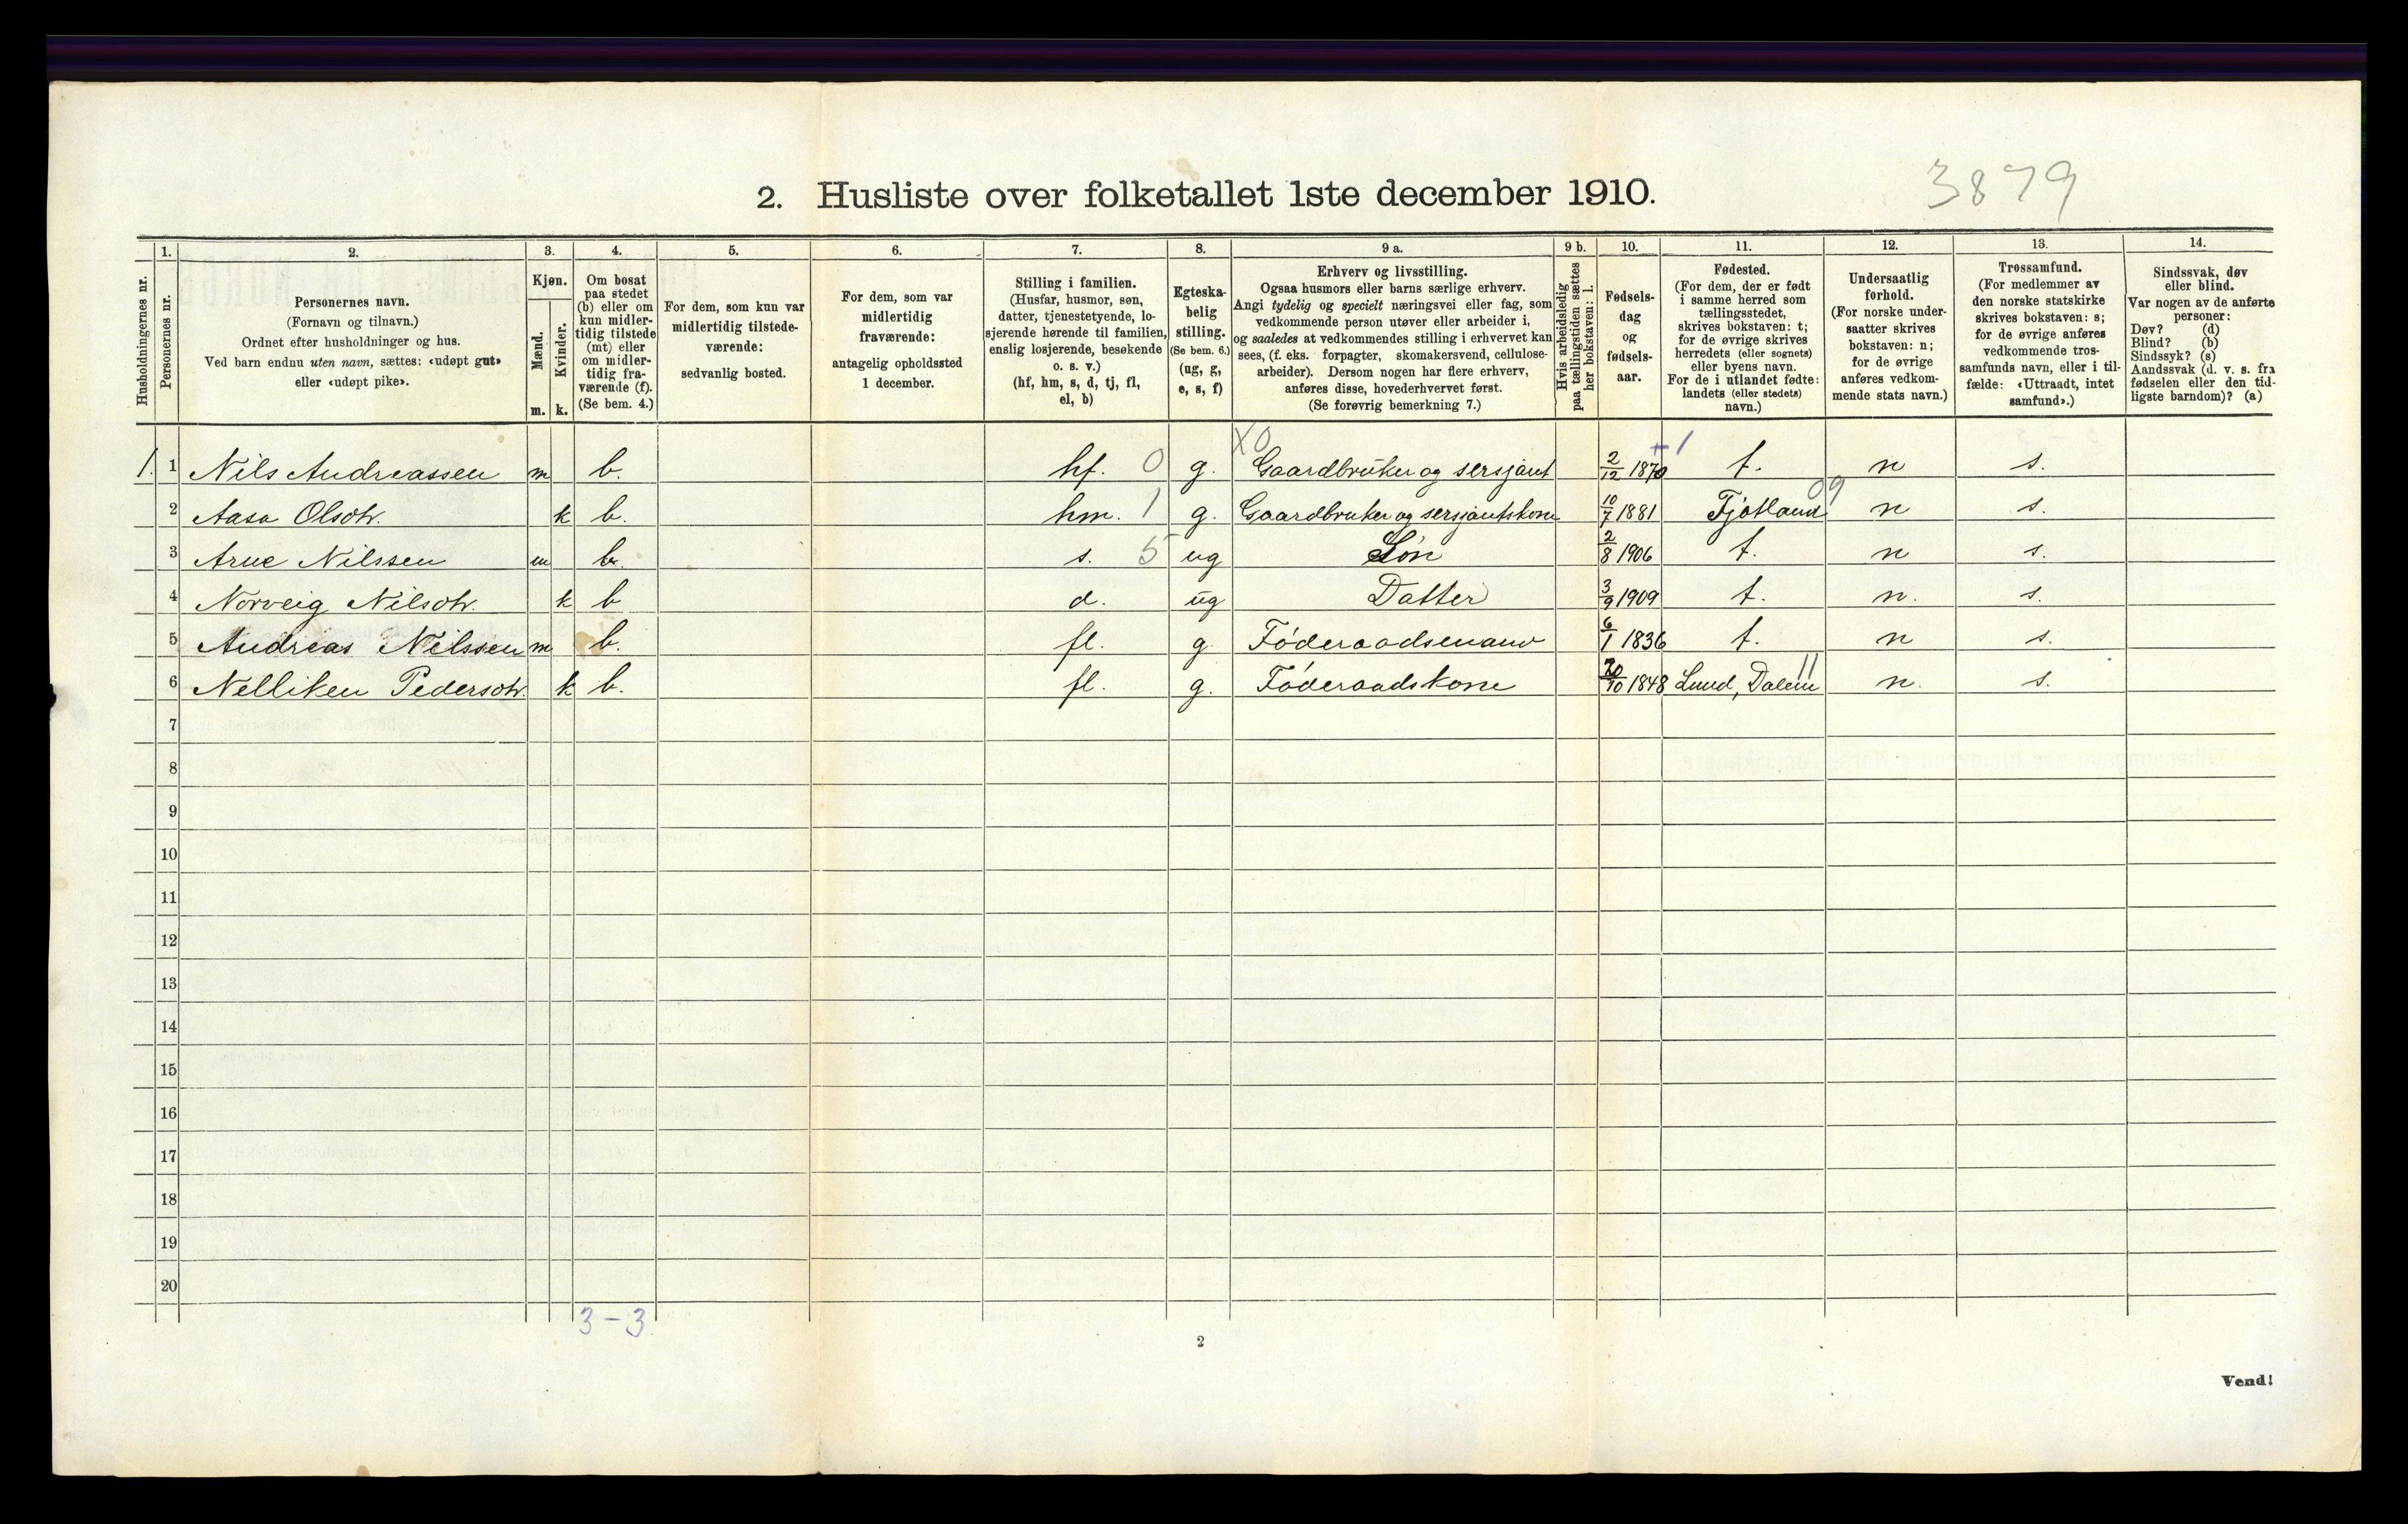 2. Husliste over folketallet 1ste december 1910.
3879
Husholdningernes nr.
1.
Personernes nr.
2.
Personernes navn.
(Fornavn og tilnavn.)
Ordnet efter husholdninger og hus.
Ved barn endnu uten navn, sættes: «udøpt gut»
eller «udøpt pike».
3.
Kjøn.
Mænd.
Kvinder.
m. k.
4.
Om bosat
paa stedet
(b) eller om
kun midler-
tidig tilstede
(mt) eller
om midler-
tidig fra-
værende (f).
(Se bem. 4.)
5.
For dem, som kun var
midlertidig tilstede-
værende:
sedvanlig bosted.
6.
For dem, som var
midlertidig
fraværende:
antagelig opholdssted
1 december.
7.
Stilling i familien.
(Husfar, husmor, søn,
datter, tjenestetyende, lo-
sjerende hørende til familien,
enslig losjerende, besøkende
o. s. v.)
(hf, hm, s, d, tj, fl,
el, b)
8.
Egteska-
belig
stilling.
(Se bem. 6.)
(ug, g,
e, s, f)
9 a.
Erhverv og livsstilling.
Ogsaa husmors eller barns særlige erhverv.
Angi tydelig og specielt næringsvei eller fag, som
vedkommende person utøver eller arbeider i,
og saaledes at vedkommendes stilling i erhvervet kan
sees, (f. eks. forpagter, skomakersvend, cellulose-
arbeider). Dersom nogen har flere erhverv,
anføres disse, hovederhvervet først.
(Se forøvrig bemerkning 7.)
9 b.
Hvis arbeidsledig
paa tællingstiden sættes
her bokstaven: l.
10.
Fødsels-
dag
og
fødsels-
aar.
11.
Fødested.
(For dem, der er født
i samme herred som
tællingsstedet,
skrives bokstaven: t;
for de øvrige skrives
herredets (eller sognets)
eller byens navn.
For de i utlandet fødte:
landets (eller stedets)
navn.)
12.
Undersaatlig
forhold.
(For norske under-
saatter skrives
bokstaven: n;
for de øvrige
anføres vedkom-
mende stats navn.)
13.
Trossamfund.
(For medlemmer av
den norske statskirke
skrives bokstaven: s;
for de øvrige anføres
vedkommende tros-
samfunds navn, eller i til-
fælde: «Uttraadt, intet
samfund».)
14.
Sindssvak, døv
eller blind.
Var nogen av de anførte
personer:
Døv? (d)
Blind? (b)
Sindssyk? (s)
Aandssvak (d. v. s. fra
fødselen eller den tid-
ligste barndom)? (a)
X0 +1
1. 1 Nils Andreassen m b. hf. 0 g. Gaardbruker og sersjant 2/12 1870 t. n s.
2 Aasa Olsdtr. k b. hm. 1 g. Gaardbruker og sersjantskone 10/7 1881 Fjotland 09 n s.
3 Arne Nilssen m b. s. 5 ug Søn 2/8 1906 t. n s.
4 Norveig Nilsdtr. k b d. ug Datter 3/9 1909 t. n. s.
5 Andreas Nilssen m b. fl. g. Føderaadsmand 6/1 1836 t. n s.
6 Nelliken Pedersdtr. k b. fl. g. Føderaadskone 20/10 1848 Lund, Dalene 11 n. s.
7
8
9
10
11
12
13
14
15
16
17
18
19
20
3 - 3
2
Vend!